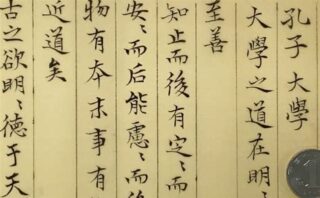 孔子 大學
大學之道在明〻
至善
知止而後有定〻而
安〻而后能慮〻而
物有本末事有
近道矣
古之欲明〻德于天